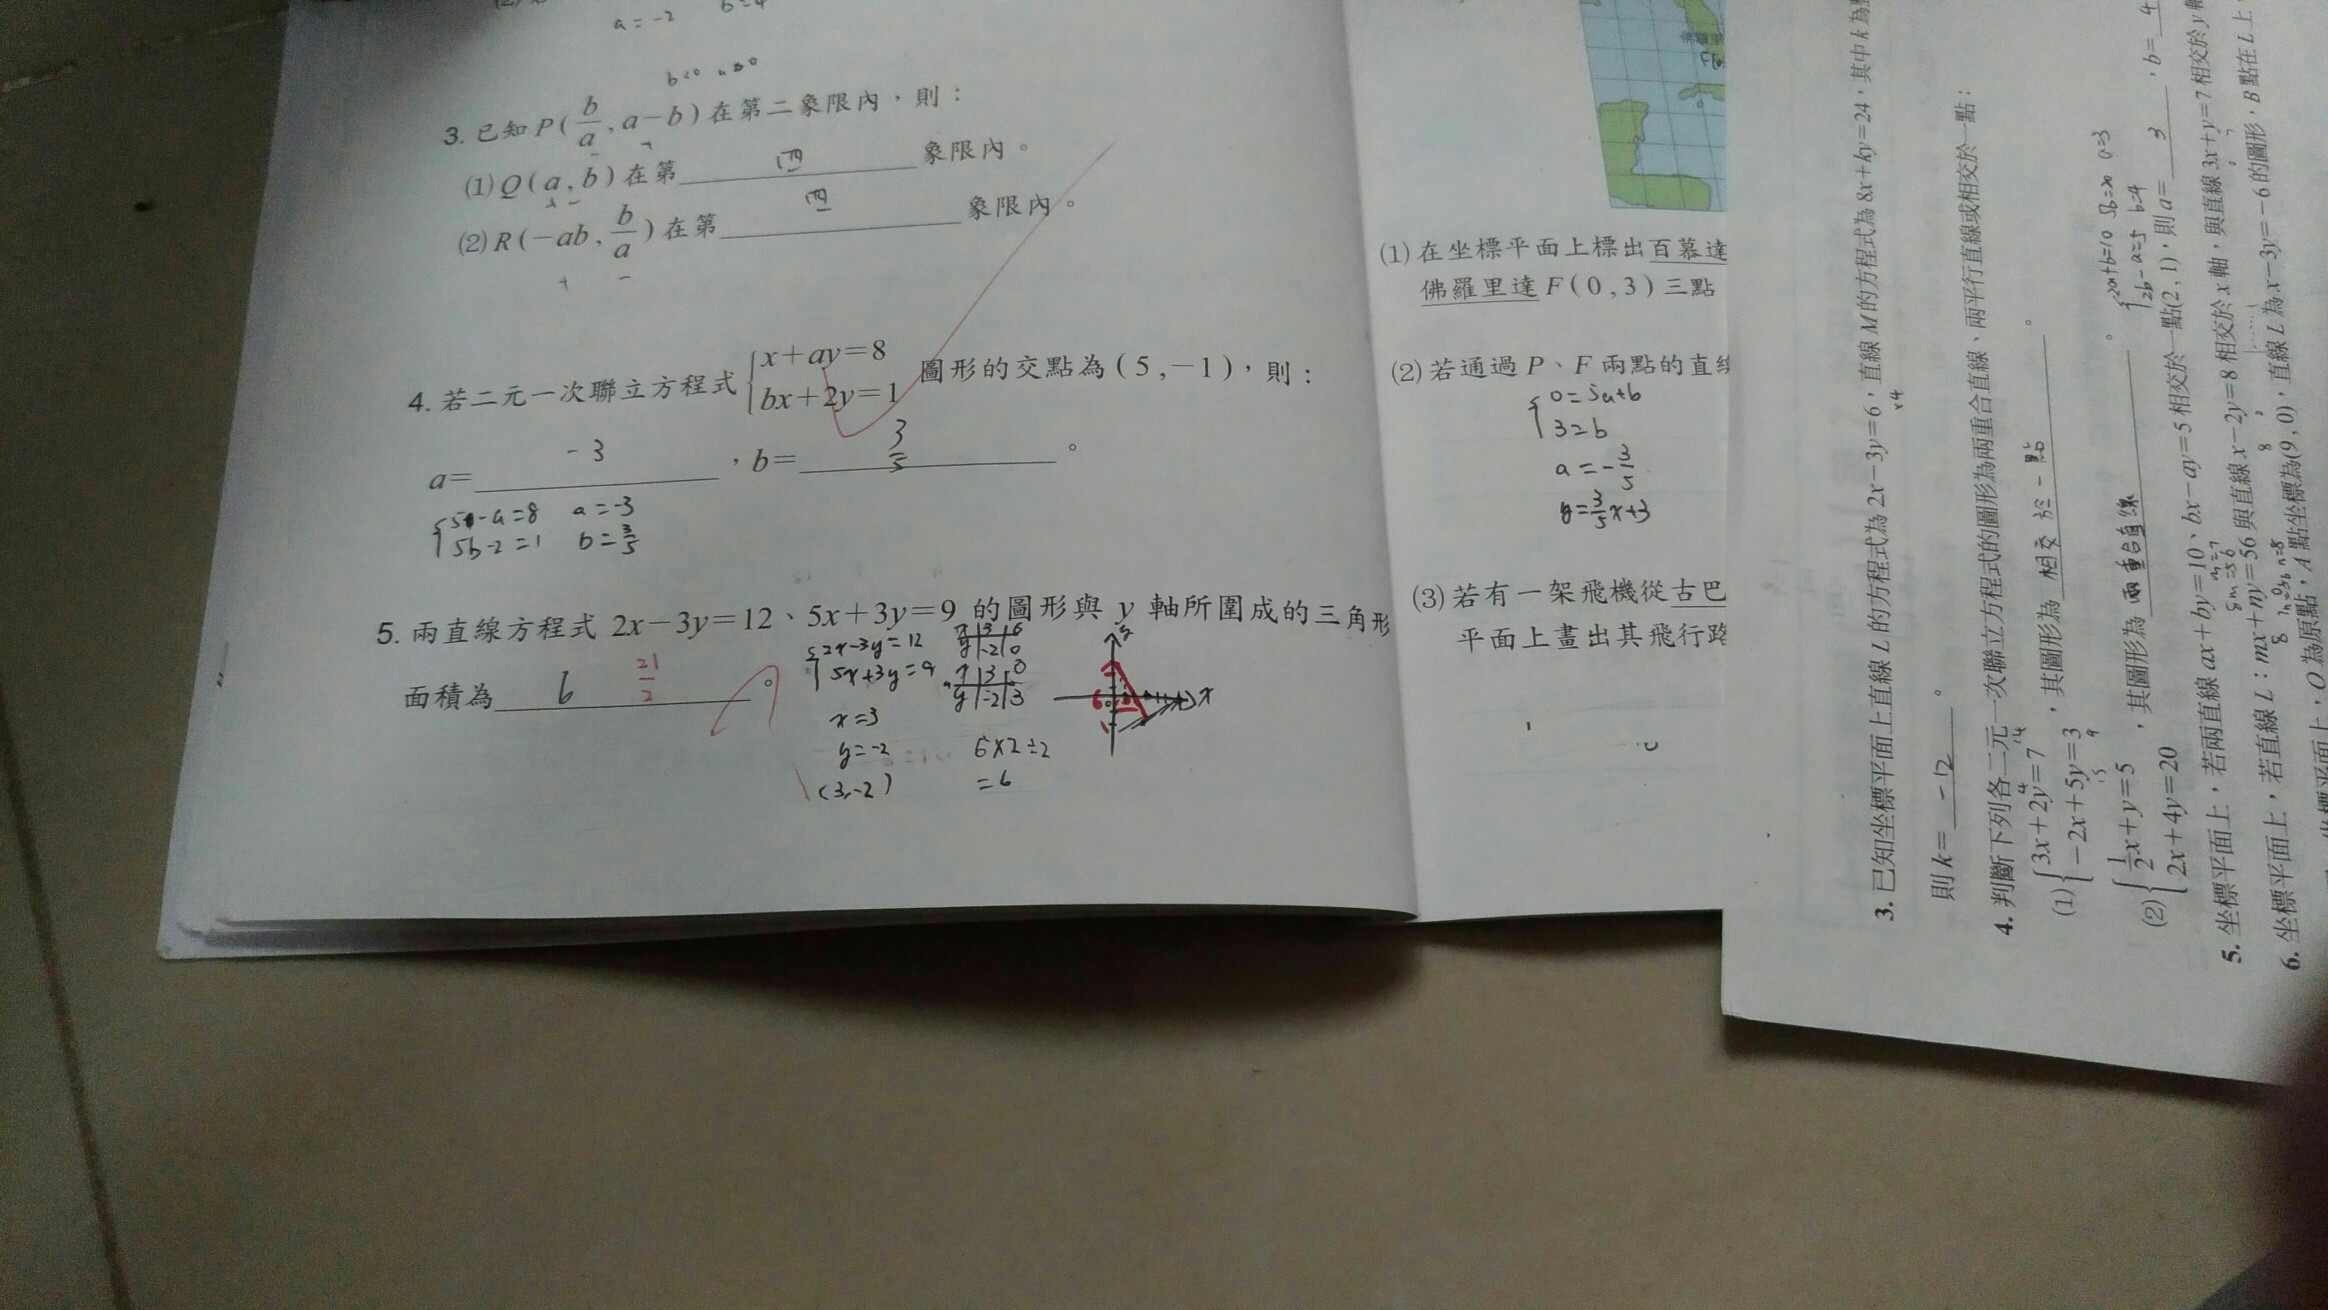 a=-2 b=4
b<0 a>0
3. 已知 P(b/a, a-b) 在第二象限內,則:
- +
(1) Q(a, b) 在第 四 象限內。
+ -
(2) R(-ab, b/a) 在第 四 象限內。
+ -
4. 若二元一次聯立方程式 { x+ay=8
bx+2y=1 圖形的交點為 (5, -1),則:
a= -3 ,b= 3/5 。
5-a=8 a=-3
5b-2=1 b=3/5
5. 兩直線方程式 2x-3y=12、5x+3y=9 的圖形與 y 軸所圍成的三角形
面積為 6 21/2 。
2x-3y=12
5x+3y=9
x=3
y=-2
(3,-2)
x 3 6
y -2 0
x 3 0
y -2 3
6×2÷2
=6
y
x
(1) 在坐標平面上標出百慕達
佛羅里達 F(0, 3) 三點
(2) 若通過 P、F 兩點的直線
0=5a+b
3=b
a=-3/5
y=3/5x+3
(3) 若有一架飛機從古巴
平面上畫出其飛行路
3. 已知坐標平面上直線 L 的方程式為 2x-3y=6,直線 M 的方程式為 8x+ky=24,其中 k 為
×4
則 k= -12 。
4. 判斷下列各二元一次聯立方程式的圖形為兩重合直線、兩平行直線或相交於一點:
(1) { 3x+2y=7
-2x+5y=3 ,其圖形為 相交於一點 。
(2) { 1/2x+y=5
2x+4y=20 ,其圖形為 兩重合直線 。
2a+b=10 5b=20 a=3
2b-a=5 b=4
5. 坐標平面上,若兩直線 ax+by=10、bx-ay=5 相交於一點(2, 1),則 a= 3 ,b= 4
6. 坐標平面上,若直線 L:mx+ny=56 與直線 x-2y=8 相交於 x 軸,與直線 3x+y=7 相交於 y 軸
8m=56
點,A 點坐標為(9, 0),直線 L 為 x-3y=-6 的圖形,B 點在 L 上
O 為原點